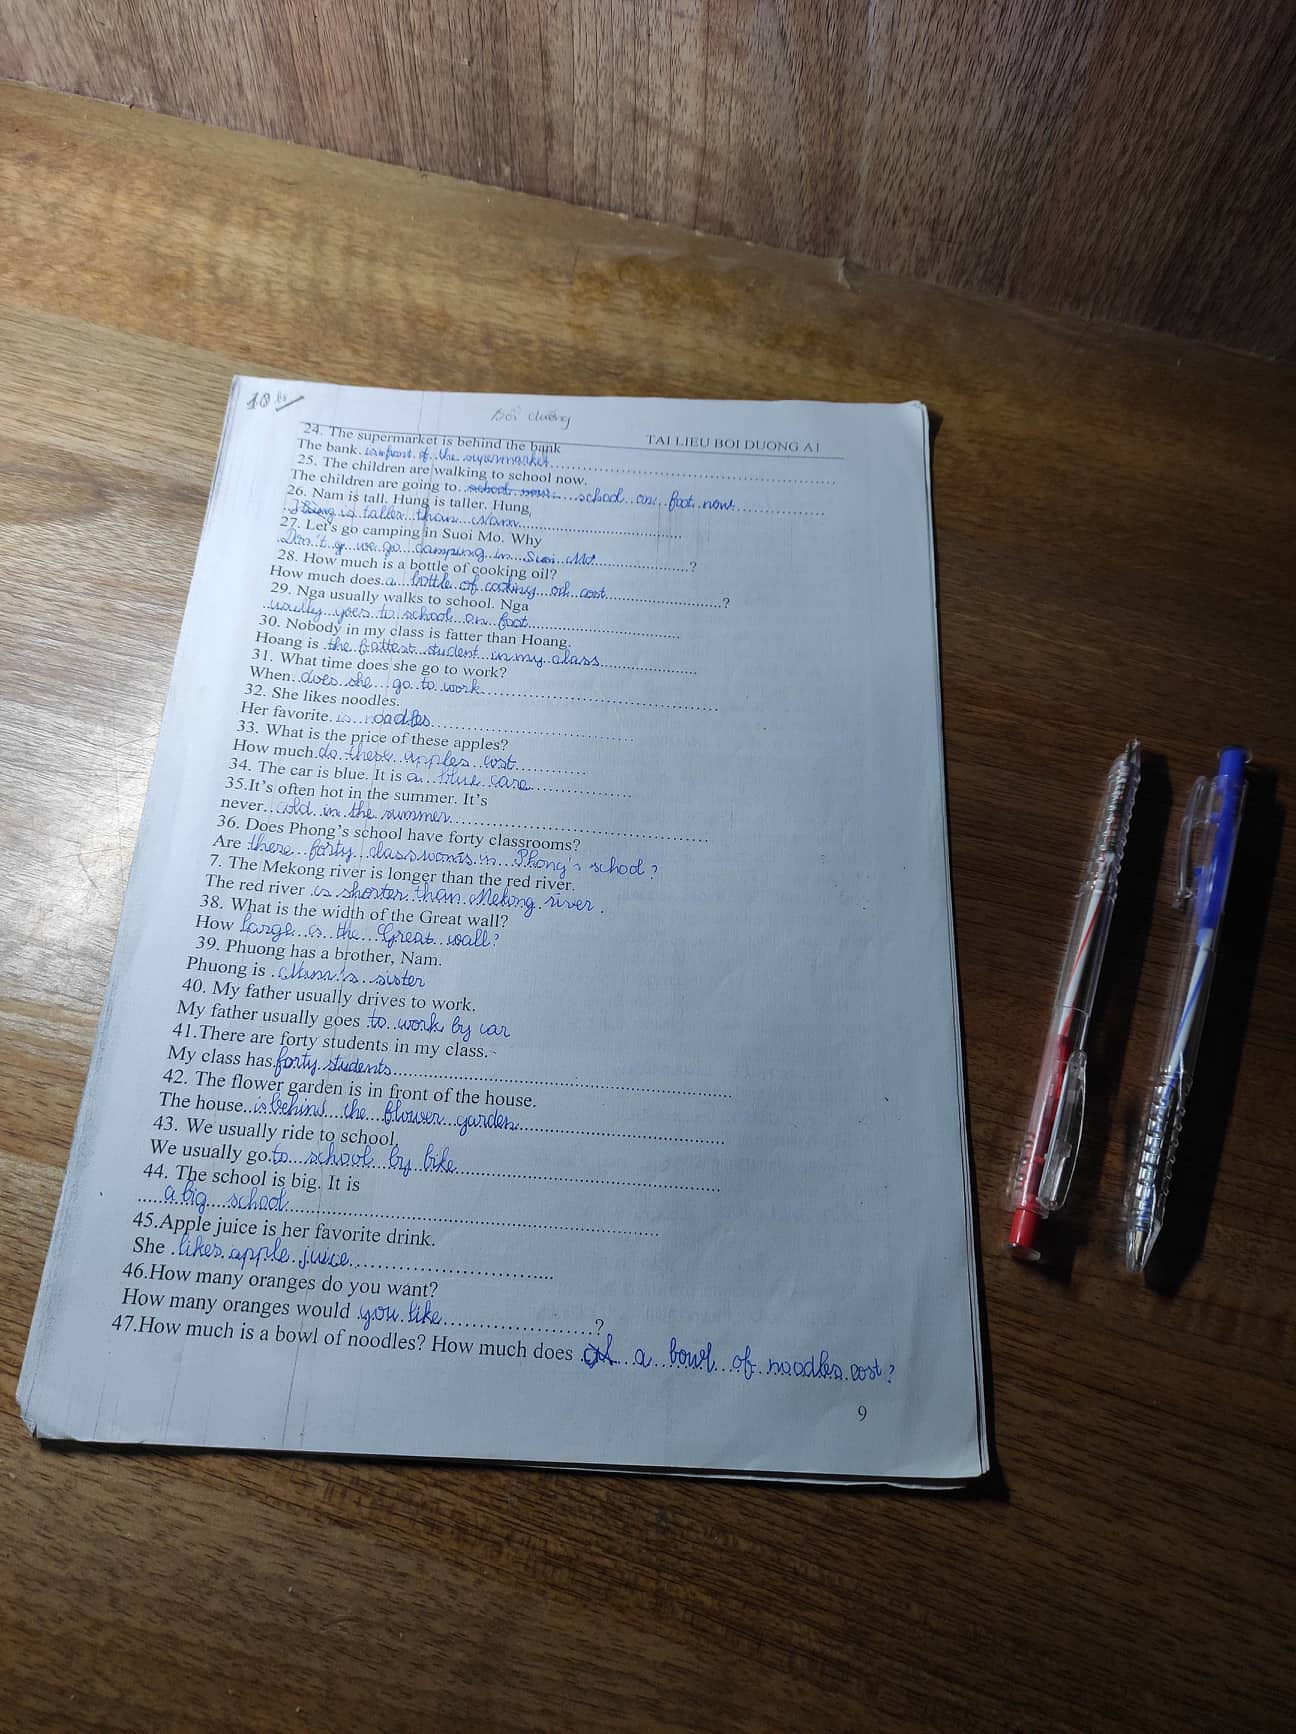 10 bs
Bồi dưỡng
TAI LIEU BOI DUONG A1
24. The supermarket is behind the bank
The bank. is infront of the supermarket
25. The children are walking to school now.
The children are going to school on foot now
26. Nam is tall. Hung is taller. Hung
is taller than Nam
27. Let's go camping in Suoi Mo. Why
Don't we go camping in Suoi Mo ?
28. How much is a bottle of cooking oil?
How much does a bottle of cooking cost ?
29. Nga usually walks to school. Nga
usually goes to school on foot
30. Nobody in my class is fatter than Hoang.
Hoang is the fattest student in my class
31. What time does she go to work?
When does she go to work
32. She likes noodles.
Her favorite. is noodles
33. What is the price of these apples?
How much do these apples cost
34. The car is blue. It is a blue care
35.It's often hot in the summer. It's
never cold in the summer
36. Does Phong's school have forty classrooms?
Are there forty classrooms in Phong's school?
7. The Mekong river is longer than the red river.
The red river is shorter than Mekong river.
38. What is the width of the Great wall?
How large is the Great wall?
39. Phuong has a brother, Nam.
Phuong is Nam's sister
40. My father usually drives to work.
My father usually goes to work by car
41.There are forty students in my class.
My class has forty students
42. The flower garden is in front of the house.
The house is behind the flower garden
43. We usually ride to school
We usually go to school by bike
44. The school is big. It is
a big school
45.Apple juice is her favorite drink.
She likes apple juice
46.How many oranges do you want?
How many oranges would you like ?
47.How much is a bowl of noodles? How much does a bowl of noodles cost?
9